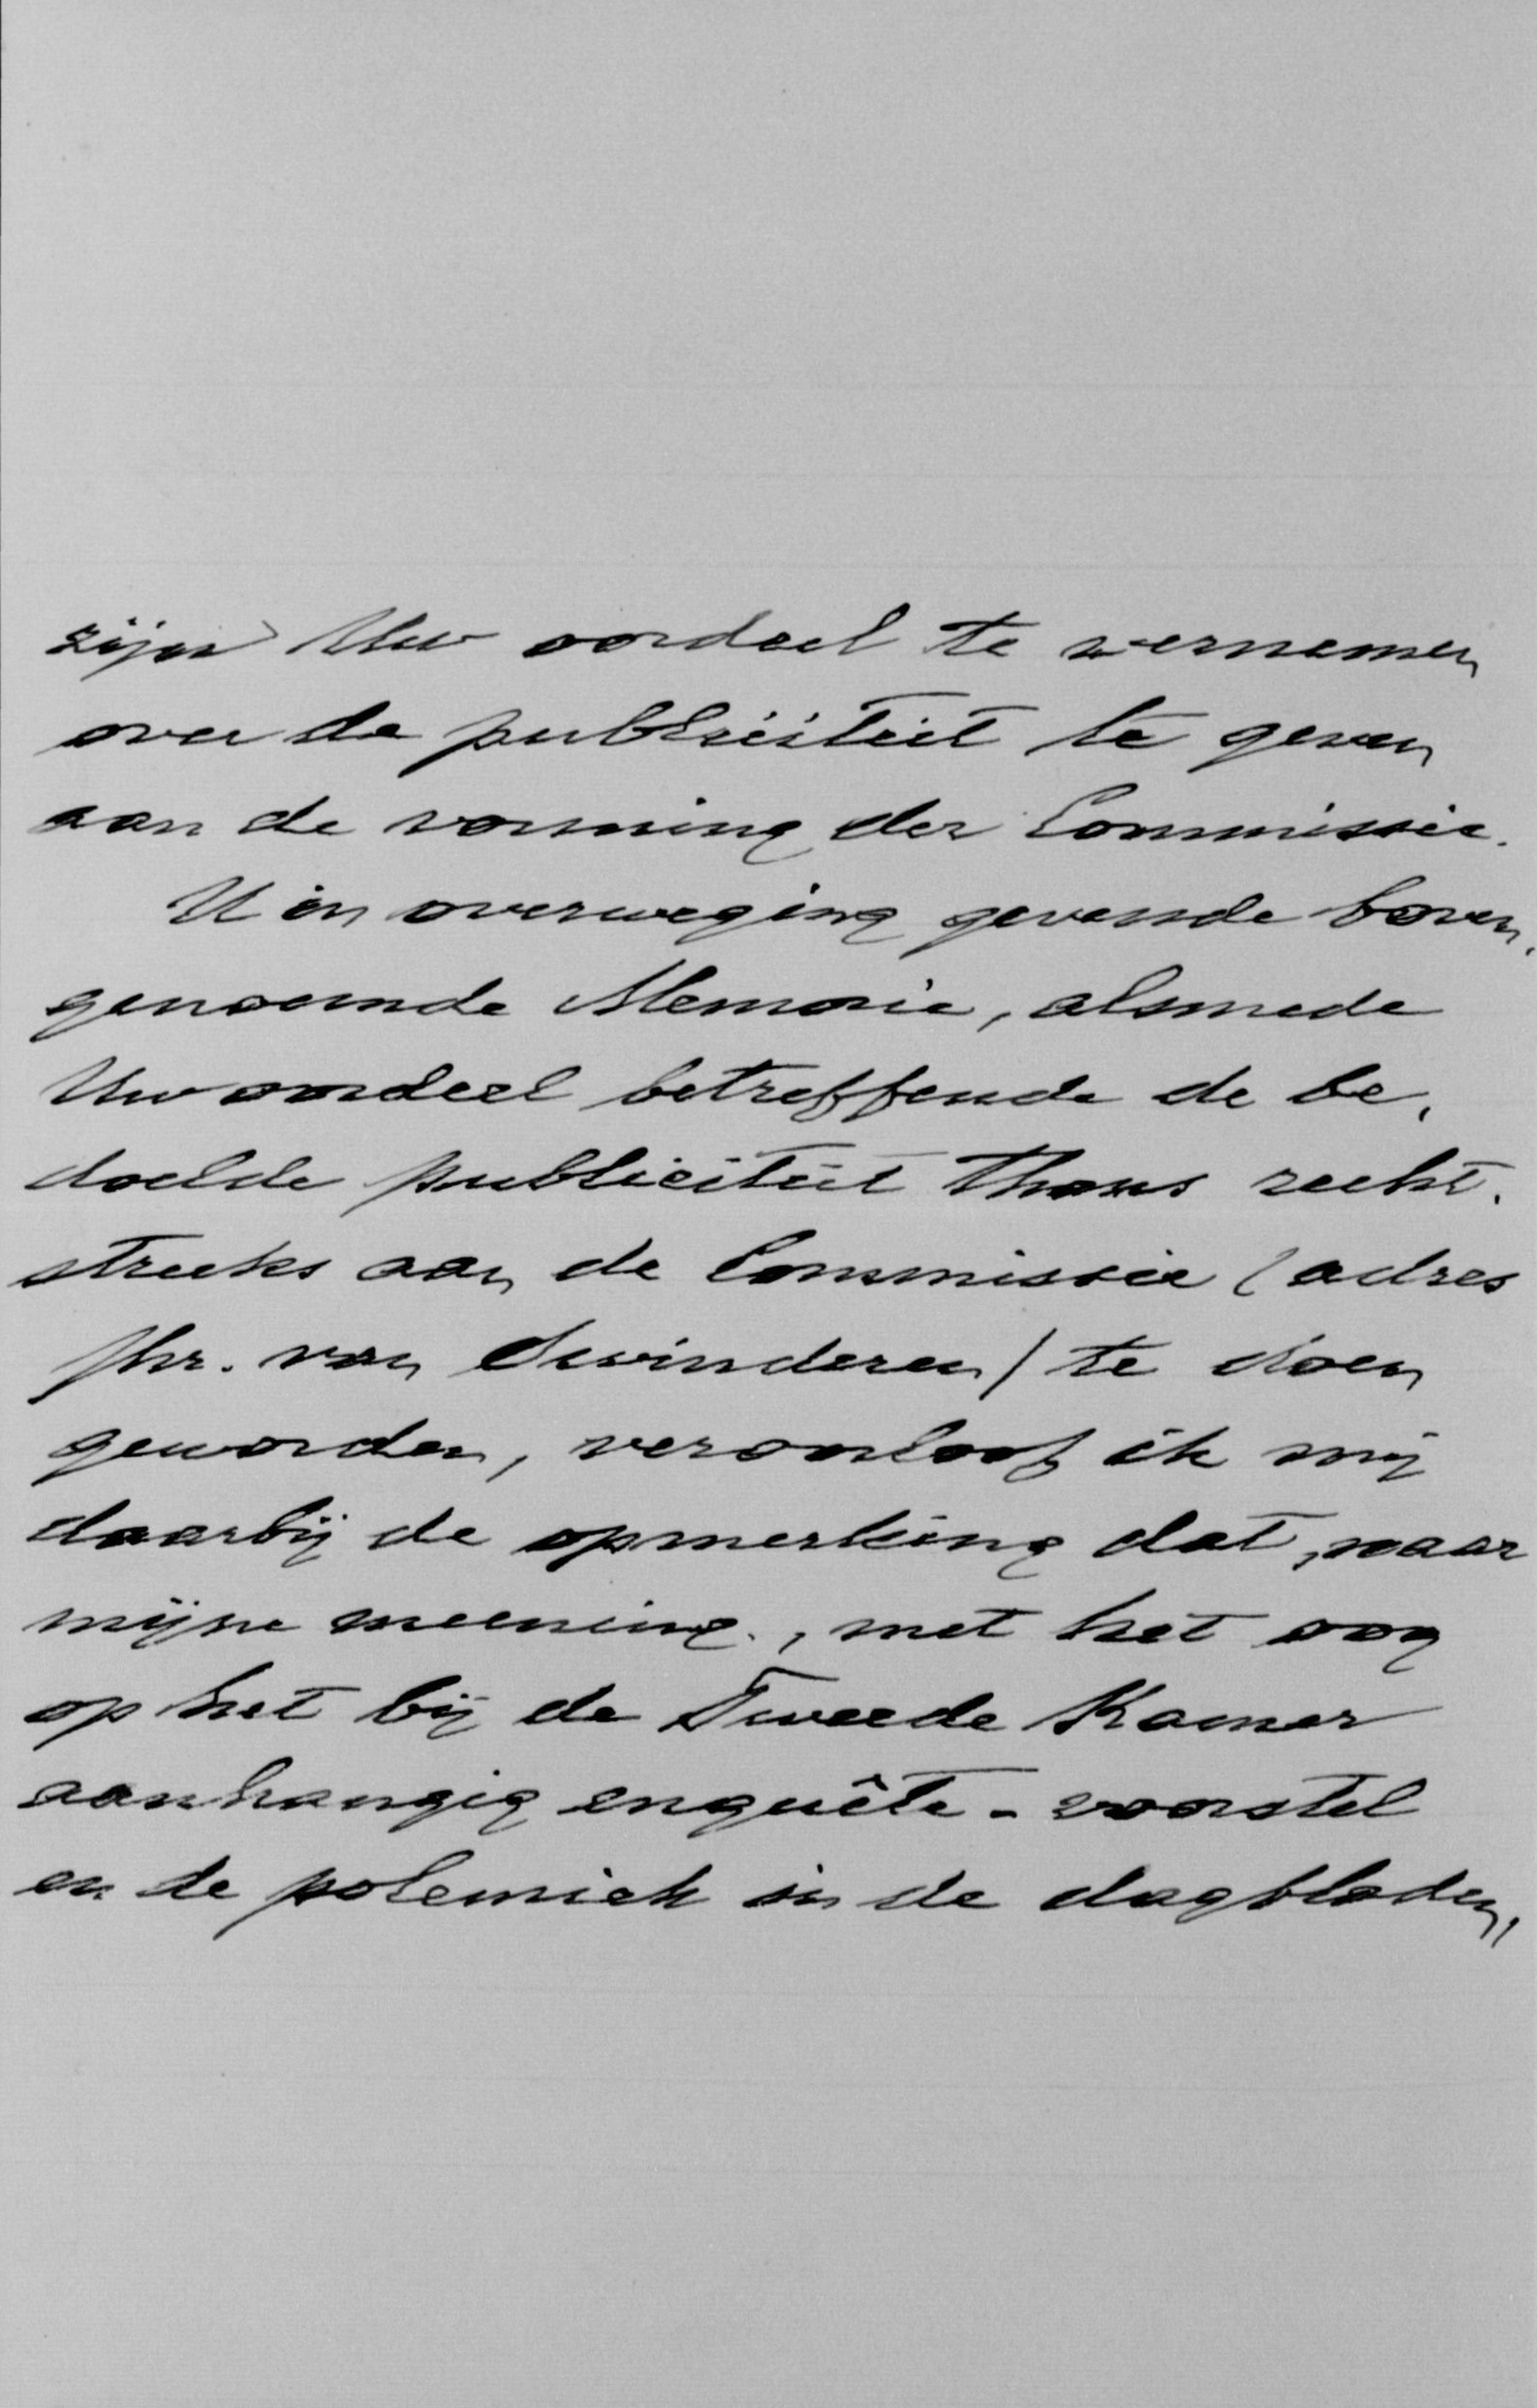 zijn Uw oordeel te vernemen
over de publiciteit te geven
aan de vorming der Commissie.
U in overweging gevende boven-
genoemde Memorie, alsmede
Uw oordeel betreffende de be-
doelde publiciteit thans recht-
streeks aan de Commissie (adres
Jhr. van Swinderen) te doen
geworden, veroorloof ik mij
daarbij de opmerking dat, naar
mijne meening, met het oog
op het bij de Tweede Kamer
aanhangig enquête-voorstel
en de polemiek in de dagbladen,